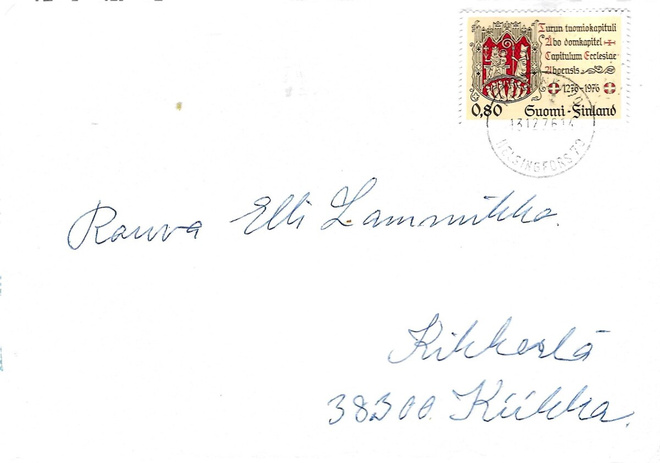 Turun tuomiokapituli
Åbo domkapitel
Capitulum Ecclesiae
Aboensis
1276-1976
0,80 Suomi-Finland
13.12.76.14
HELSINGFORS 70
Rouva Elli Lammikko.
Kikkerlä
38300. Kiikka.